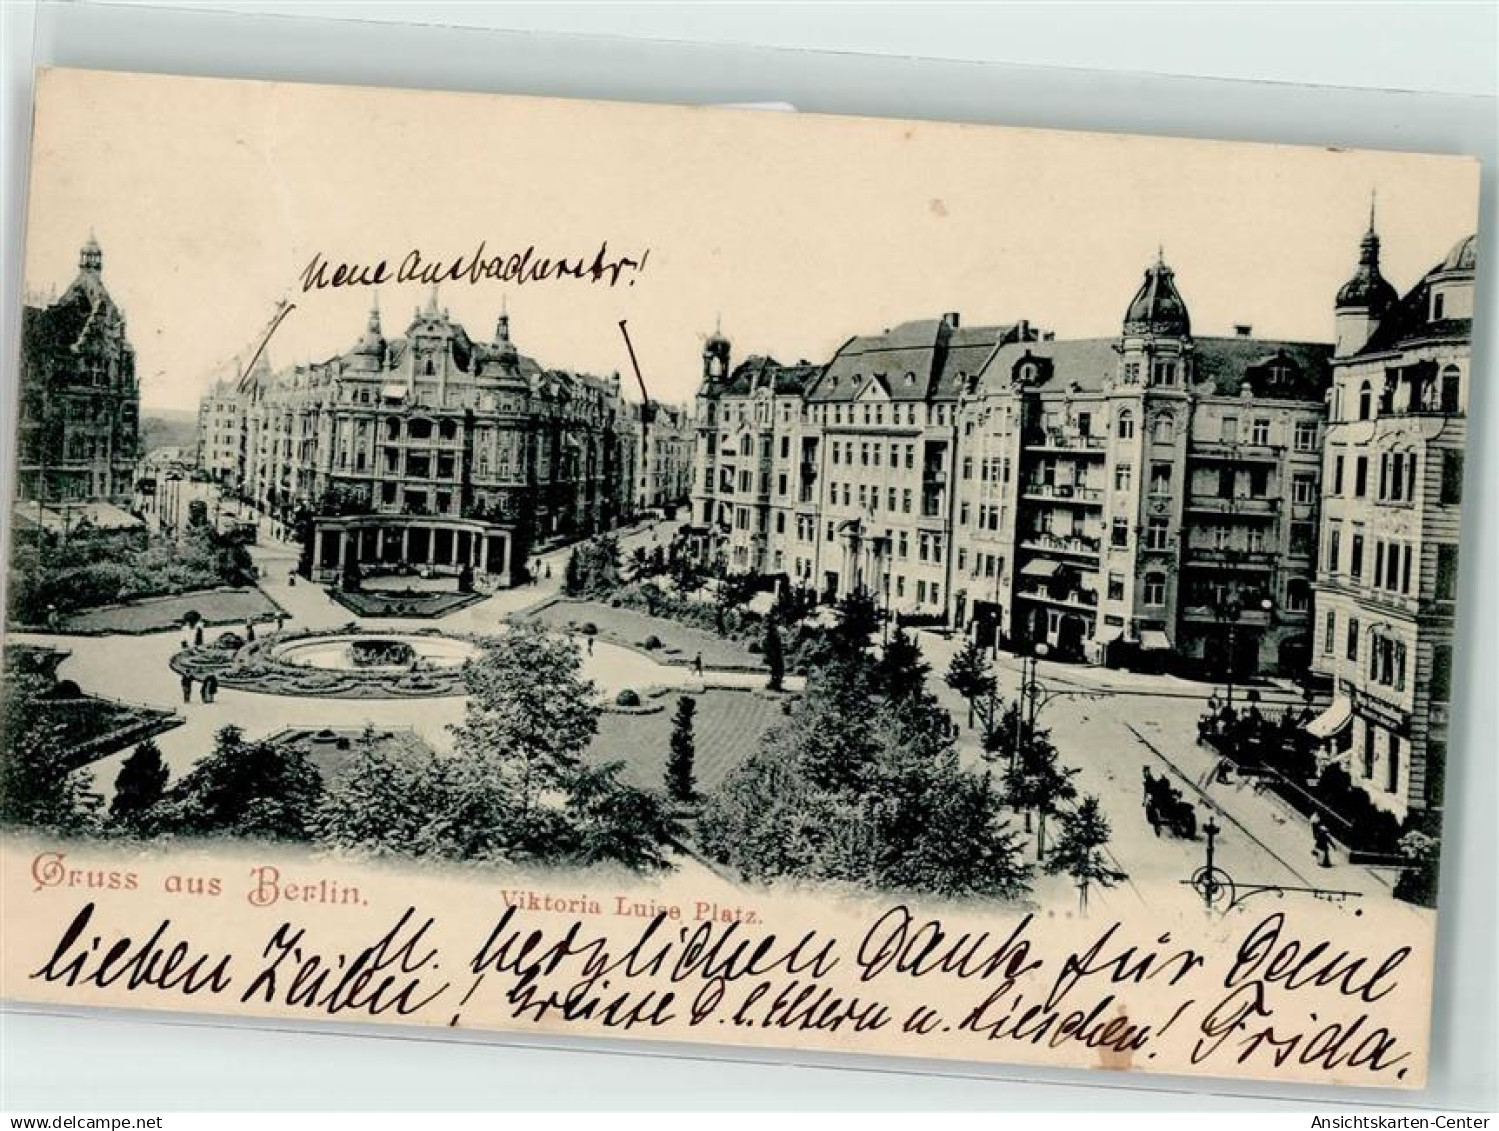 Neue Ansbacherstr!
Gruss aus Berlin.
Viktoria Luise Platz.
M. herzlichen Dank für Deine
lieben Zeilen! Grüsse D. l. Eltern u. Lieschen! Frida.
delcampe.net
Ansichtskarten-Center